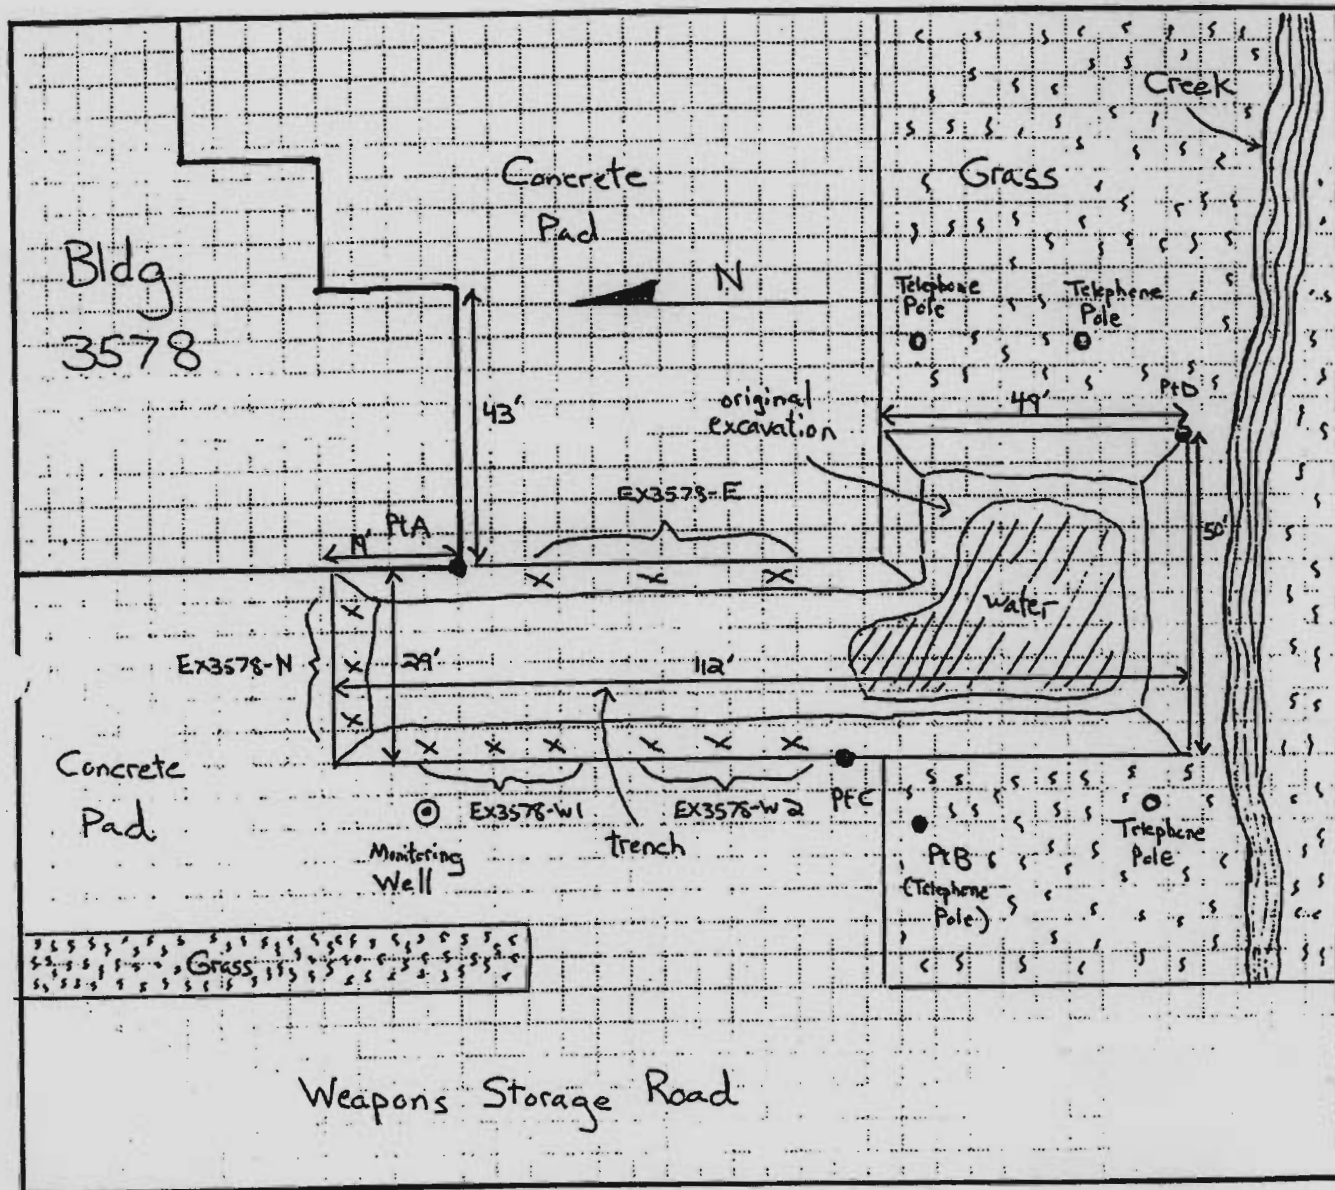 Creek
Concrete
Pad
Grass
Bldg
3578
N
Telephone
Pole
Telephone
Pole
PtD
49'
original
excavation
43'
EX3578-E
50'
PtA
19'
water
EX3578-N
29'
112'
Concrete
Pad
EX3578-W1
EX3578-W2
PtC
trench
Monitoring
Well
PtB
(Telephone
Pole)
Telephone
Pole
Grass
Weapons Storage Road